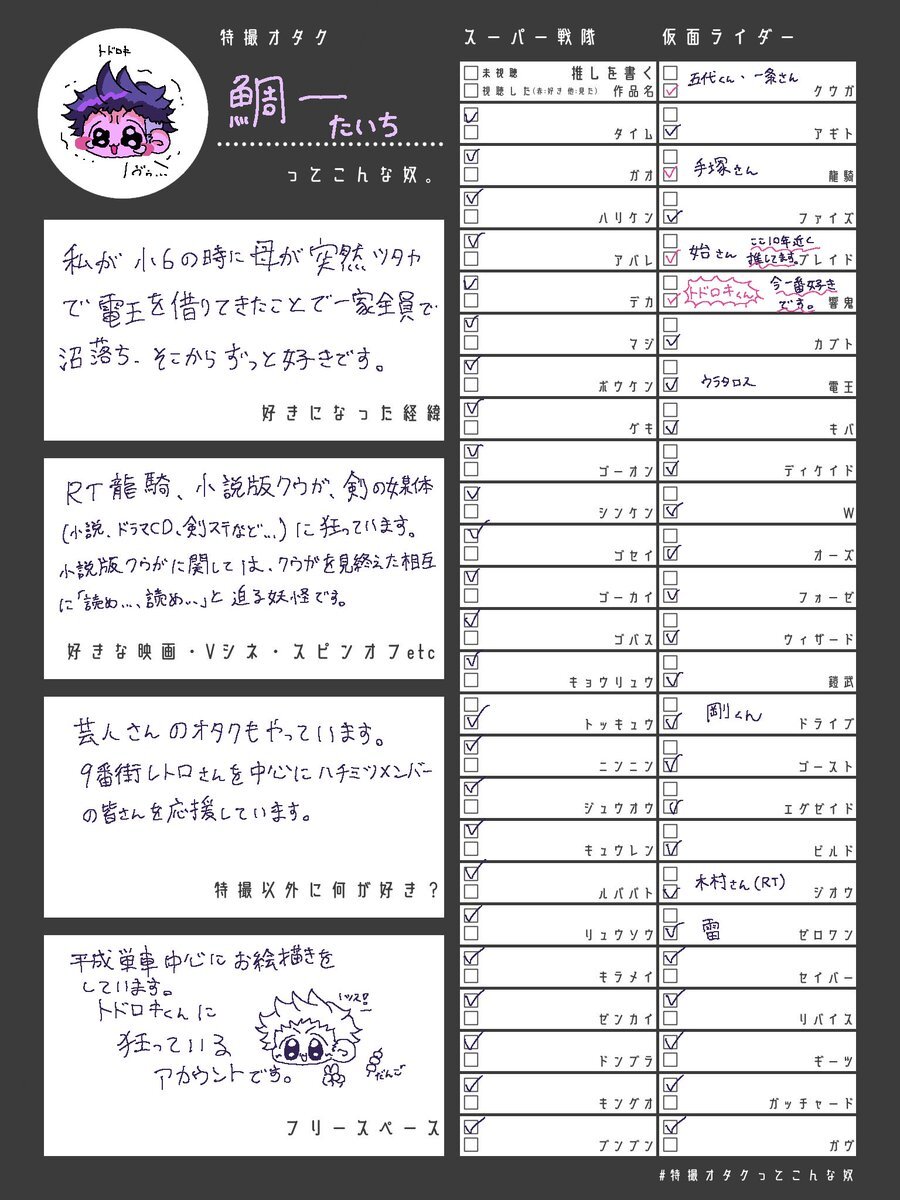 特撮オタク
トドロキ
鯛一
たいち
ヴゥ…
ってこんな奴。
私が小6の時に母が突然ツタヤ
で電王を借りてきたことで一家全員で
沼落ち、そこからずっと好きです。
好きになった経緯
RT龍騎、小説版クウガ、剣の媒体
(小説、ドラマCD、剣ステなど…)に狂っています。
小説版クウガに関しては、クウガを見終えた相互
に「読め…、読め…」と迫る妖怪です。
好きな映画・Vシネ・スピンオフetc
芸人さんのオタクもやっています。
9番街レトロさんを中心にハチミツメンバー
の皆さんを応援しています。
特撮以外に何が好き?
平成単車中心にお絵描きを
しています。
トドロキくんに
狂っている
アカウントです。
ッス!
だんご
フリースペース
スーパー戦隊
未視聴 推しを書く
視聴した(赤:好き 他:見た) 作品名
タイム
ガオ
ハリケン
アバレ
デカ
マジ
ボウケン
ゲキ
ゴーオン
シンケン
ゴセイ
ゴーカイ
ゴバス
キョウリュウ
トッキュウ
ニンニン
ジュウオウ
キュウレン
ルパパト
リュウソウ
キラメイ
ゼンカイ
ドンブラ
キングオ
ブンブン
仮面ライダー
五代くん、一条さん
クウガ
アギト
手塚さん
龍騎
ファイズ
始さん ここ10年近く
推してます。ブレイド
トドロキくん 今一番好き
です。響鬼
カブト
ウラタロス
電王
キバ
ディケイド
W
オーズ
フォーゼ
ウィザード
鎧武
剛くん
ドライブ
ゴースト
エグゼイド
ビルド
木村さん(RT)
ジオウ
雷
ゼロワン
セイバー
リバイス
ギーツ
ガッチャード
ガヴ
#特撮オタクってこんな奴